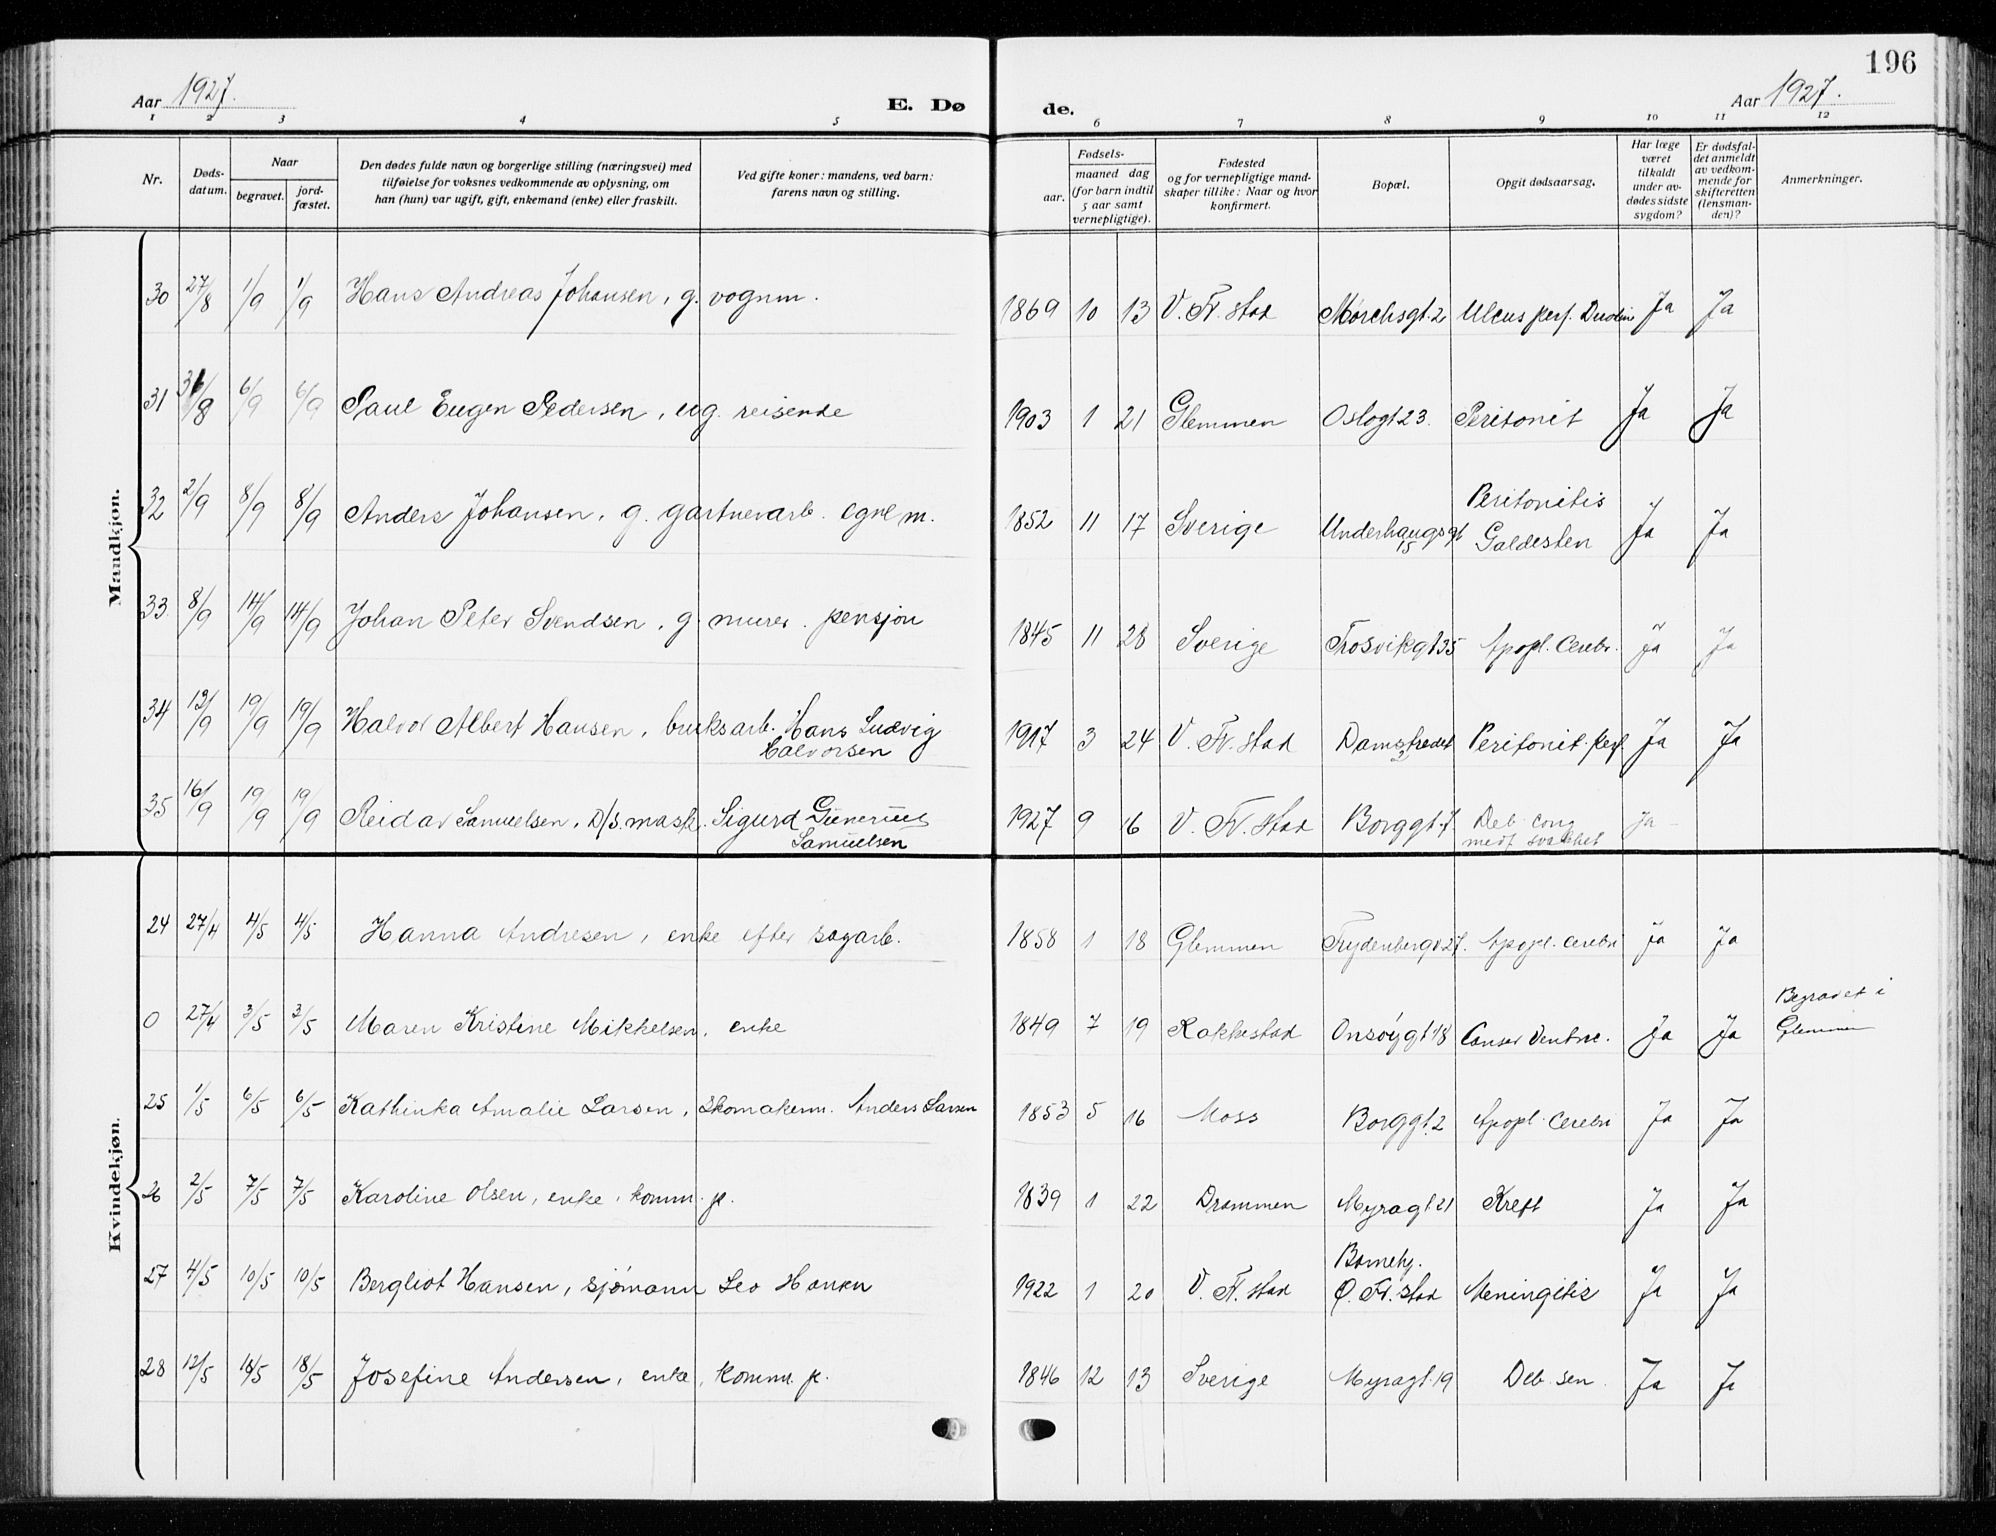 196
Aar 1927.
E. Dø
de.
Aar 1927.
1 2 3 4 5 6 7 8 9 10 11 12
Nr.
Døds-datum.
Naar
begravet.
jord-fæstet.
Den dødes fulde navn og borgerlige stilling (næringsvei) med
tilføielse for voksnes vedkommende av oplysning, om
han (hun) var ugift, gift, enkemand (enke) eller fraskilt.
Ved gifte koner: mandens, ved barn:
farens navn og stilling.
Fødsels-
aar.
maaned dag
(for barn indtil
5 aar samt
vernepligtige).
Fødested
og for vernepligtige mand-
skaper tillike: Naar og hvor
konfirmert.
Bopæl.
Opgit dødsaarsag.
Har læge
været
tilkaldt
under av-
dødes sidste
sygdom?
Er dødsfal-
det anmeldt
av vedkom-
mende for
skifteretten
(lensman-
den)?
Anmerkninger.
Mandkjøn.
30 27/8 1/9 1/9 Hans Andreas Johansen, g. vognm. 1869 10 13 V. Fr. stad Mørchsgt. 2 Ulcus perf. Ja Ja
31 /8 6/9 6/9 Paul Eugen Pedersen, ug. reisende 1903 1 21 Glemmen Oslogt 23. Peritonit Ja Ja
32 2/9 8/9 8/9 Anders Johansen, g. gartnerarb. egne m. 1852 11 17 Sverige Underhaugsgt 15 Peritonitis Galdesten Ja Ja
33 8/9 14/9 14/9 Johan Peter Svendsen, g. murer. pensjon 1845 11 28 Sverige Trosvikgt 35 Apopl. Cerebr. Ja Ja
34 13/9 19/9 19/9 Halvor Albert Hansen, bruksarb. Hans Ludvig
Halvorsen 1917 3 24 V. Fr. stad Damstredet 2 Peritonit. perf. Ja Ja
35 16/9 19/9 19/9 Reidar Samuelsen, D/S. mask. Sigurd Gunerius
Samuelsen 1927 9 16 V. Fr. stad Borggt. 7 Deb. cong
medf svakhet Ja
Kvindekjøn.
24 27/4 4/5 4/5 Hanna Andresen, enke efter sagarb. 1858 1 18 Glemmen 27. Apopl. Cerebri Ja Ja
0 27/4 3/5 3/5 Maren Kristine Mikkelsen, enke 1849 7 19 Rakkestad Onsøygt 18 Canser Ventric. Ja Ja Begravet i
Glemmen
25 1/5 6/5 6/5 Kathinka Amalie Larsen, Skomakerm. Anders Larsen 1853 5 16 Moss Borggt. 2 Apopl. Cerebri Ja Ja
26 2/5 7/5 7/5 Karoline Olsen, enke, komm. p. 1839 1 22 Drammen Myragt. 21 Kreft Ja Ja
27 4/5 10/5 10/5 Bergliot Hansen, sjømann Leo Hansen 1922 1 20 V. Fr. stad Barnehj.
Ø. Fr. stad Meningitis Ja Ja
28 12/5 18/5 18/5 Josefine Andersen, enke, komm. p. 1846 12 13 Sverige Myragt. 19 Deb. sen. Ja Ja